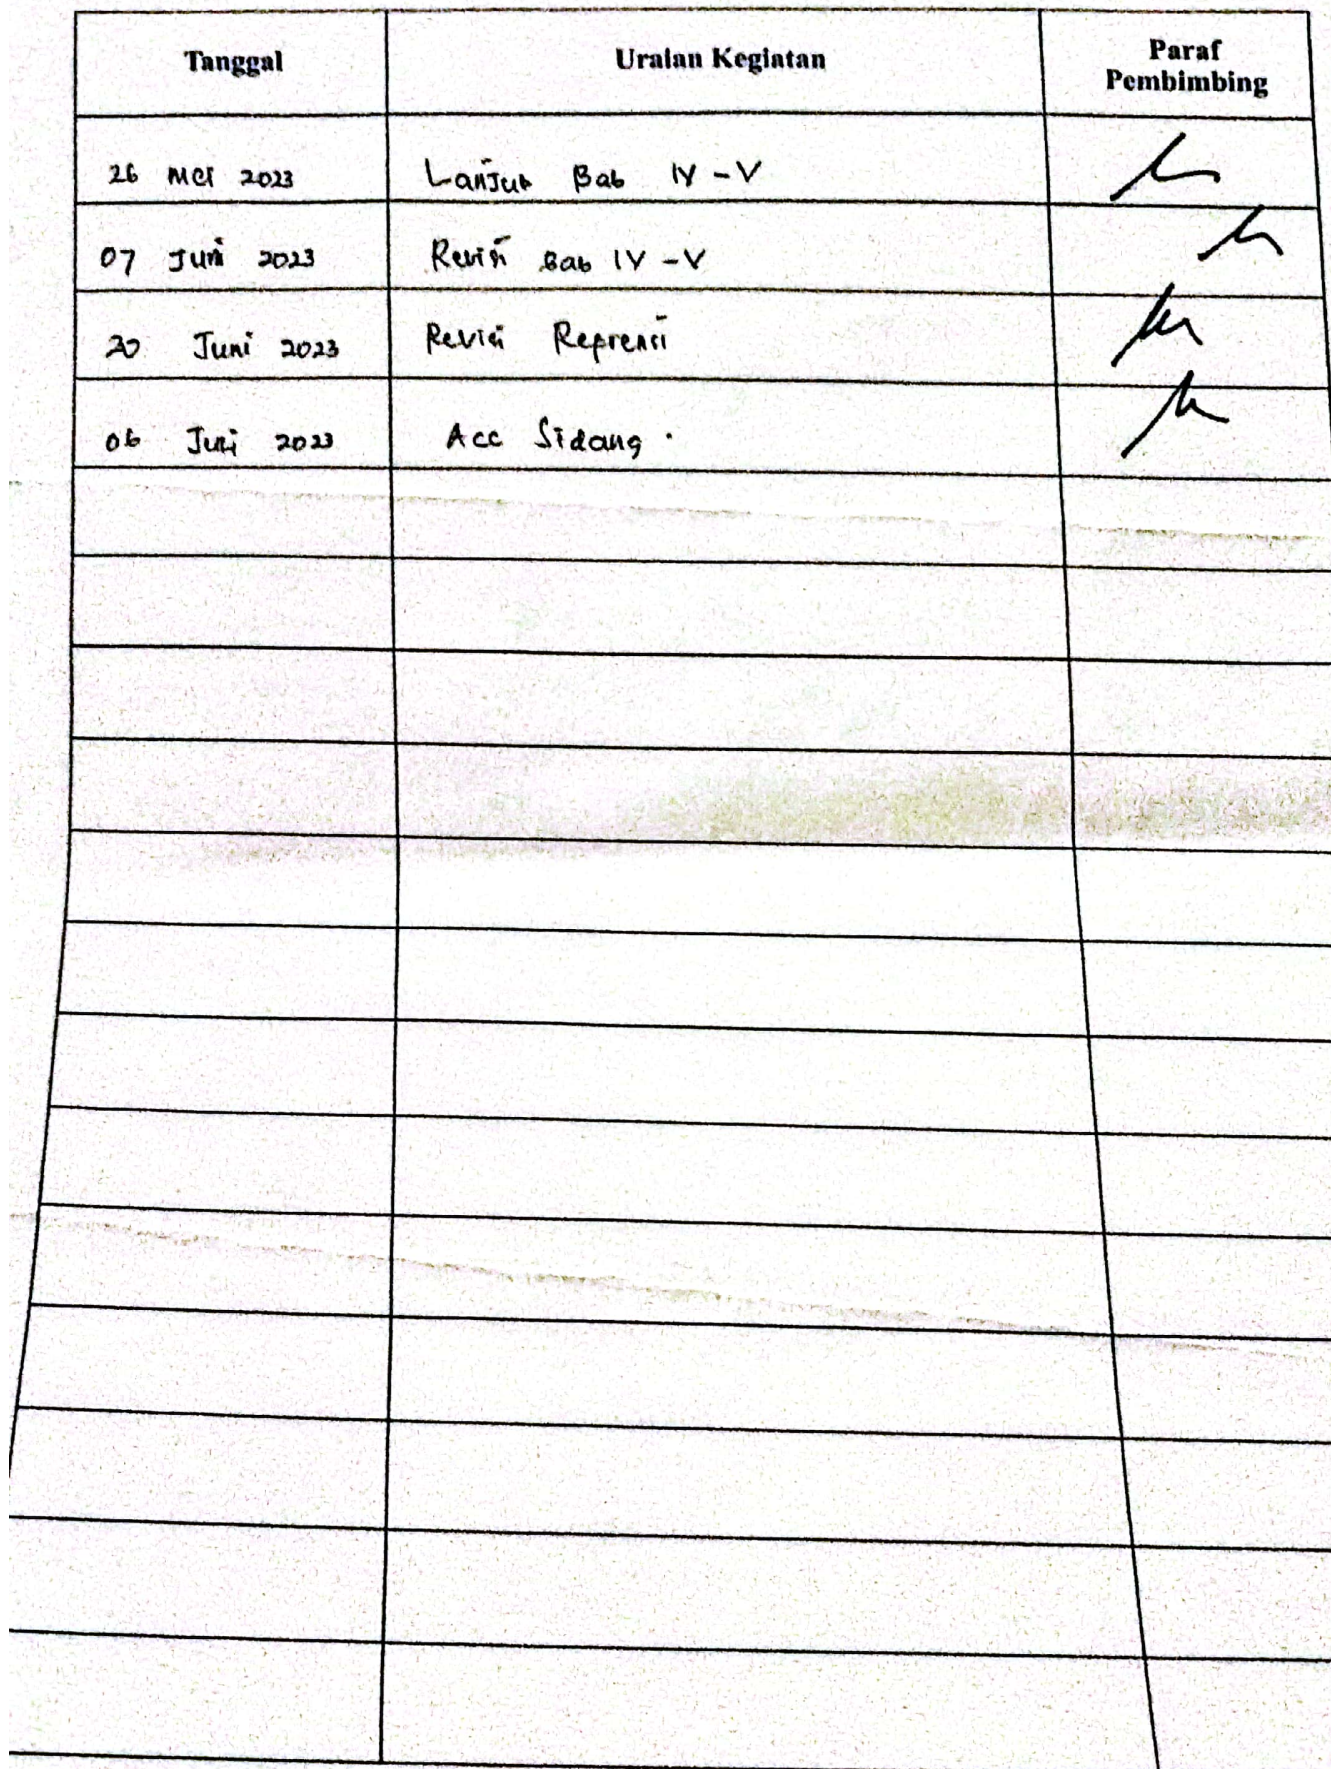 Tanggal Uraian Kegiatan Paraf Pembimbing
26 Mei 2023 Lanjut Bab IV - V
07 Juni 2023 Revisi Bab IV - V
20 Juni 2023 Revisi Reprensi
06 Juli 2023 Acc Sidang .